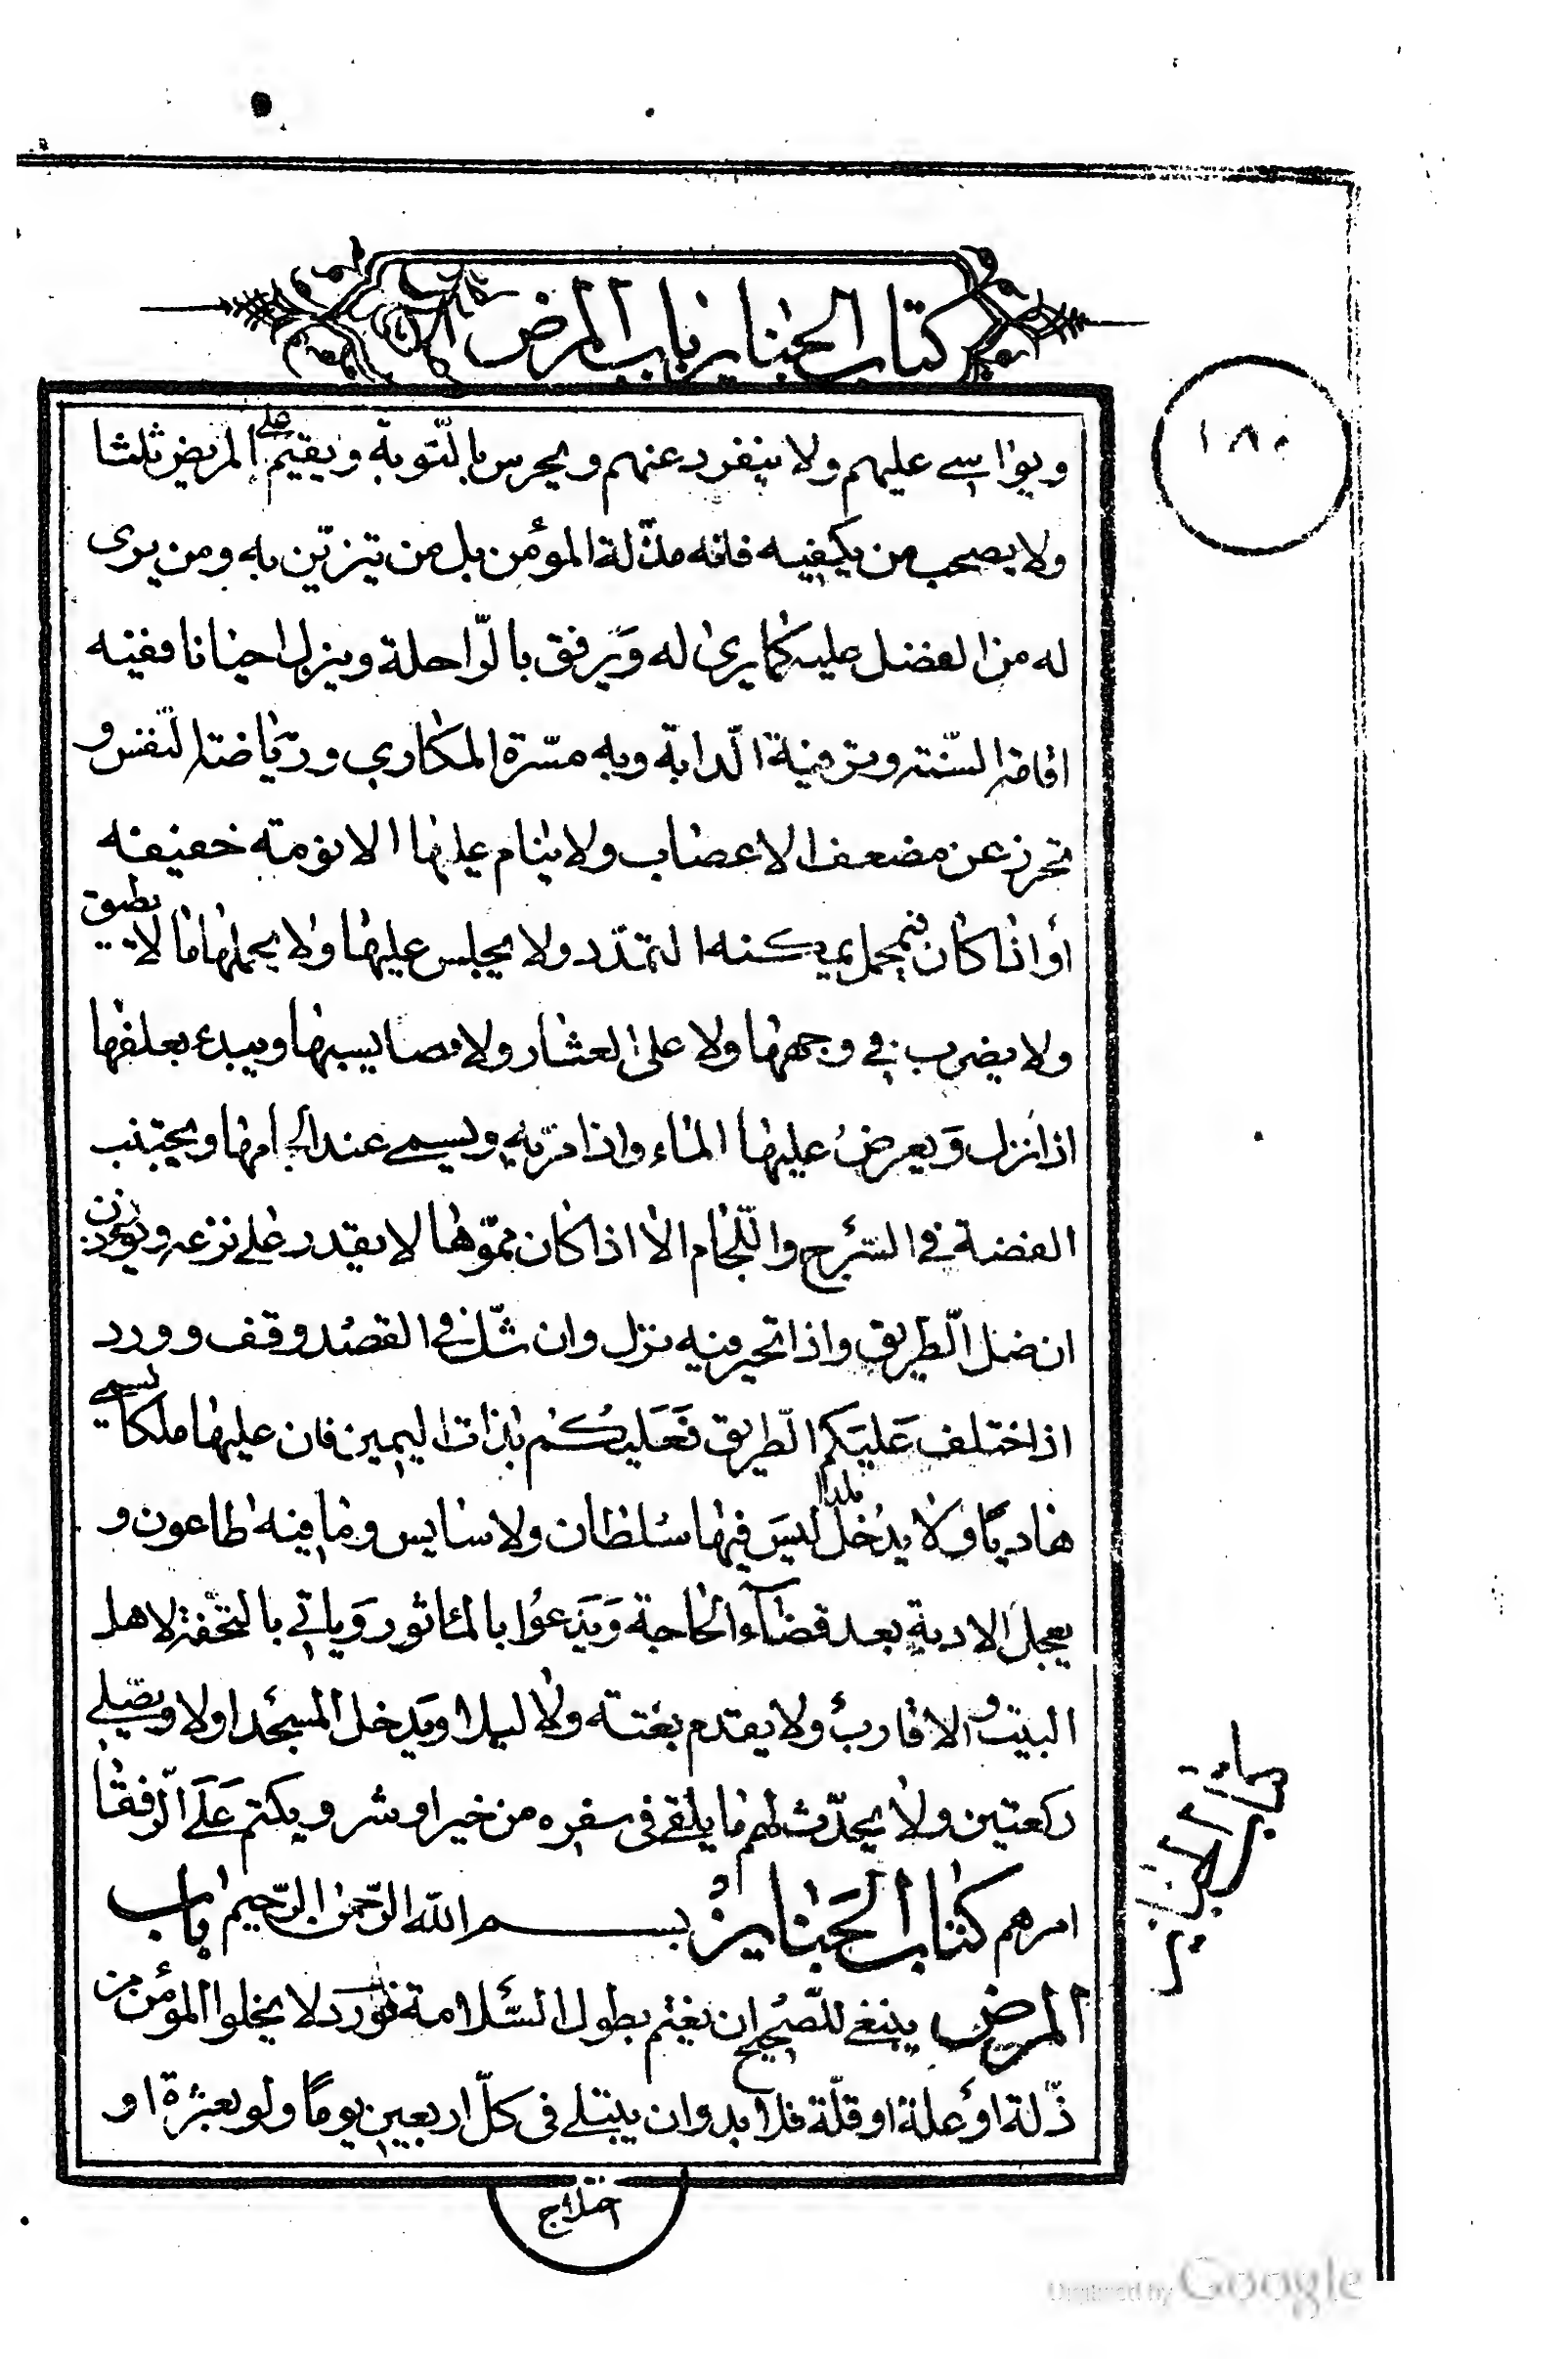 كتاب الجنايز باب المرض
١٨٠
ويواسے عليهم ولا ينفرد عنهم ويحرس بالتّوبة ويقيم على المريض ثلثا
ولا يصحب من يكفيه فانه مذلّة المؤمن بل من يتزيّن به ومن يرى
له من الفضل عليه كما يرى له وَيرفق بالرّاحلة وينزل احيانا ففيه
اقامة السّنة وترفية الّدابة وبه مسّرة المكاري ورياضة النّفس و
تحرز عن مضعف الاعصاب ولا ينام عليها الا نومة خفيفه
أو اذا كان فى محمل يمكنه التمدّد ولا يجلس عليها ولا يحملها ما لا تطيق
ولا يضرب فى وجهها ولا على العثار ولا يبدء بعلفها
اذا نزل وَيعرضُ عليها الماء واذا مرّ به ويسمے عند الجامها ويجتنب
الفضة فى السّرج واللّجام الا اذا كان مموّها لا يقدر على نزعه ويؤذن
ان ضل الّطريق واذا تحير فيه نزل وان شكّ فى القصد وقف وورد
اذا اختلف عَليَكم الّطريق فَعَليكُم بذات اليمين فان عليها ملكا يسمى
هاديًا ولا يدُخل بلدا ليسَ فيها سُلطان ولا سايس وما فيه طاعون و
يعجل الاوبة بعد قضآء الحاجة وَيَدعُوا بالمئاثور وَياتي بالتحفة لاهل
البيت والاقارب ولا يقدم بغتة ولا ليلا ويَدخل المسجد اولا ويصّلي
ركعتين ولا يحدّث لهم ما يلقى فى سفره من خير او شر ويكتم عَلَى الّرفقا
امرهم كتاب الجَنايزُ بسم الله الرّحمن الرّحيم باب
المرض ينبغے للصّحيح ان يغتم بطول السّلامة فورد لا يخلوا المؤمن من
ذّلة او علة او قلّة فلا بد وان يبتلے فى كلّ اربعين يومًا ولو بعثرة او
اختلاج
كتاب الجنايز
Digitized by Google